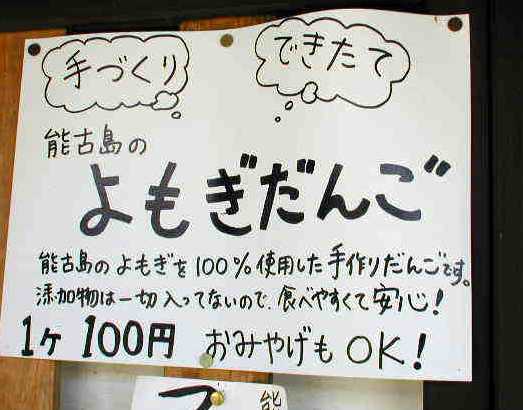 手づくり
できたて
能古島の
よもぎだんご
能古島のよもぎを100%使用した手作りだんごです。
添加物は一切入ってないので、食べやすくて安心!
1ケ 100円 おみやげもOK!
能